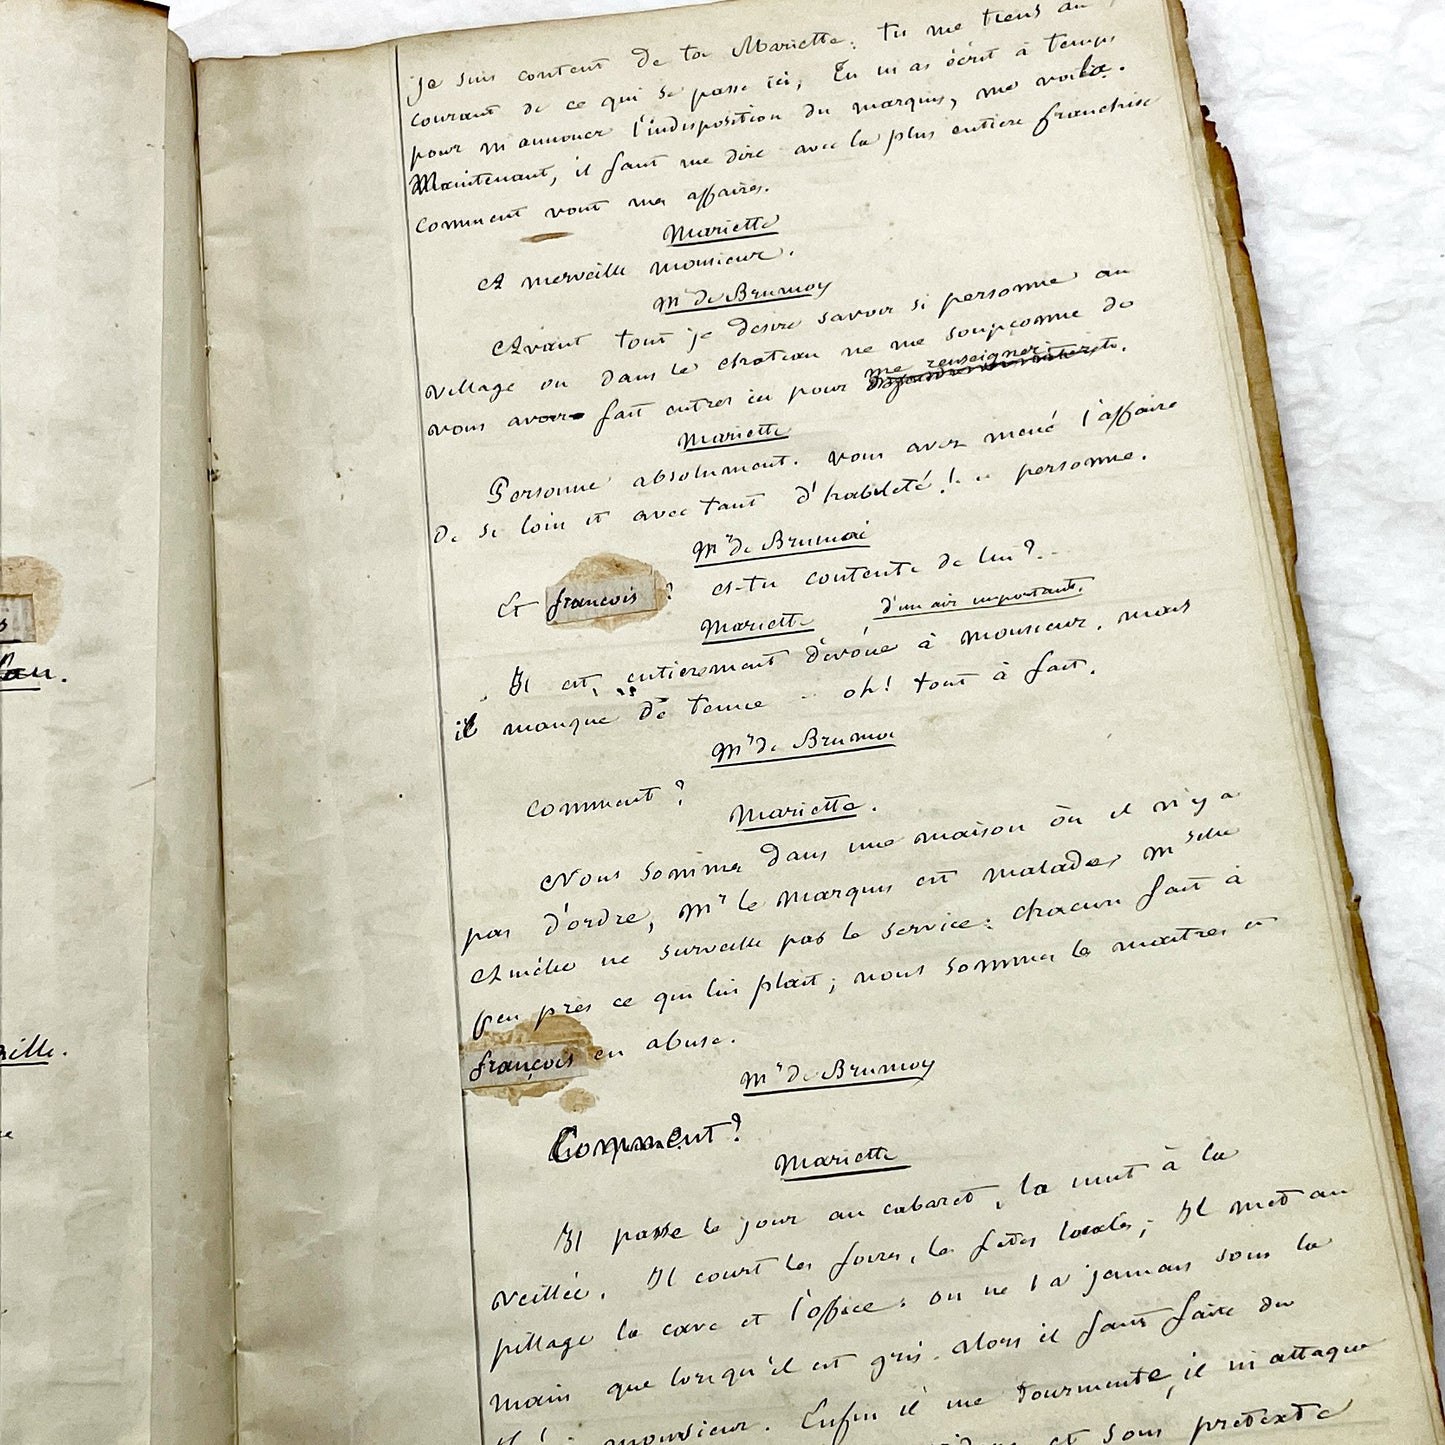 je suis content de toi Mariette, tu me tiens au
courant de ce qui se passe ici, Tu m'as écrit à temps
pour m'annoncer l'indisposition du marquis, me voila.
Maintenant, il faut me dire avec la plus entière franchise
comment vont mes affaires.
Mariette
A merveille monsieur.
Mr de Brumoy
Avant tout je desire savoir si personne au
village ou dans le chateau ne me soupçonne de
vous avoir fait entrer ici pour me renseigner
Mariette
Personne absolument. vous avez mené l'affaire
de si loin et avec tant d'habileté!.. personne.
Mr de Brumoi
Et françois? es-tu contente de lui?..
Mariette d'un air important.
Il est entierement dévoué à monsieur, mais
il manque de tenue .. oh! tout à fait.
Mr de Brumoi
Comment?
Mariette.
Nous sommes dans une maison où il n'y a
pas d'ordre, Mr le marquis est malade, Mselle
Amélie ne surveille pas le service: chacun fait à
peu près ce qui lui plait; nous sommes les maitres et
françois en abuse.
Mr de Brumoy
Comment?
Mariette
Il passe le jour au cabaret, la nuit à la
veillée. Il court les foires, les fêtes locales; Il met au
pillage la cave et l'office: on ne l'a jamais sous la
main que lorsqu'il est gris. Alors il faut faire du
monsieur. Enfin il me tourmente, il m'attaque
et sous pretexte
s
eau.
reille.